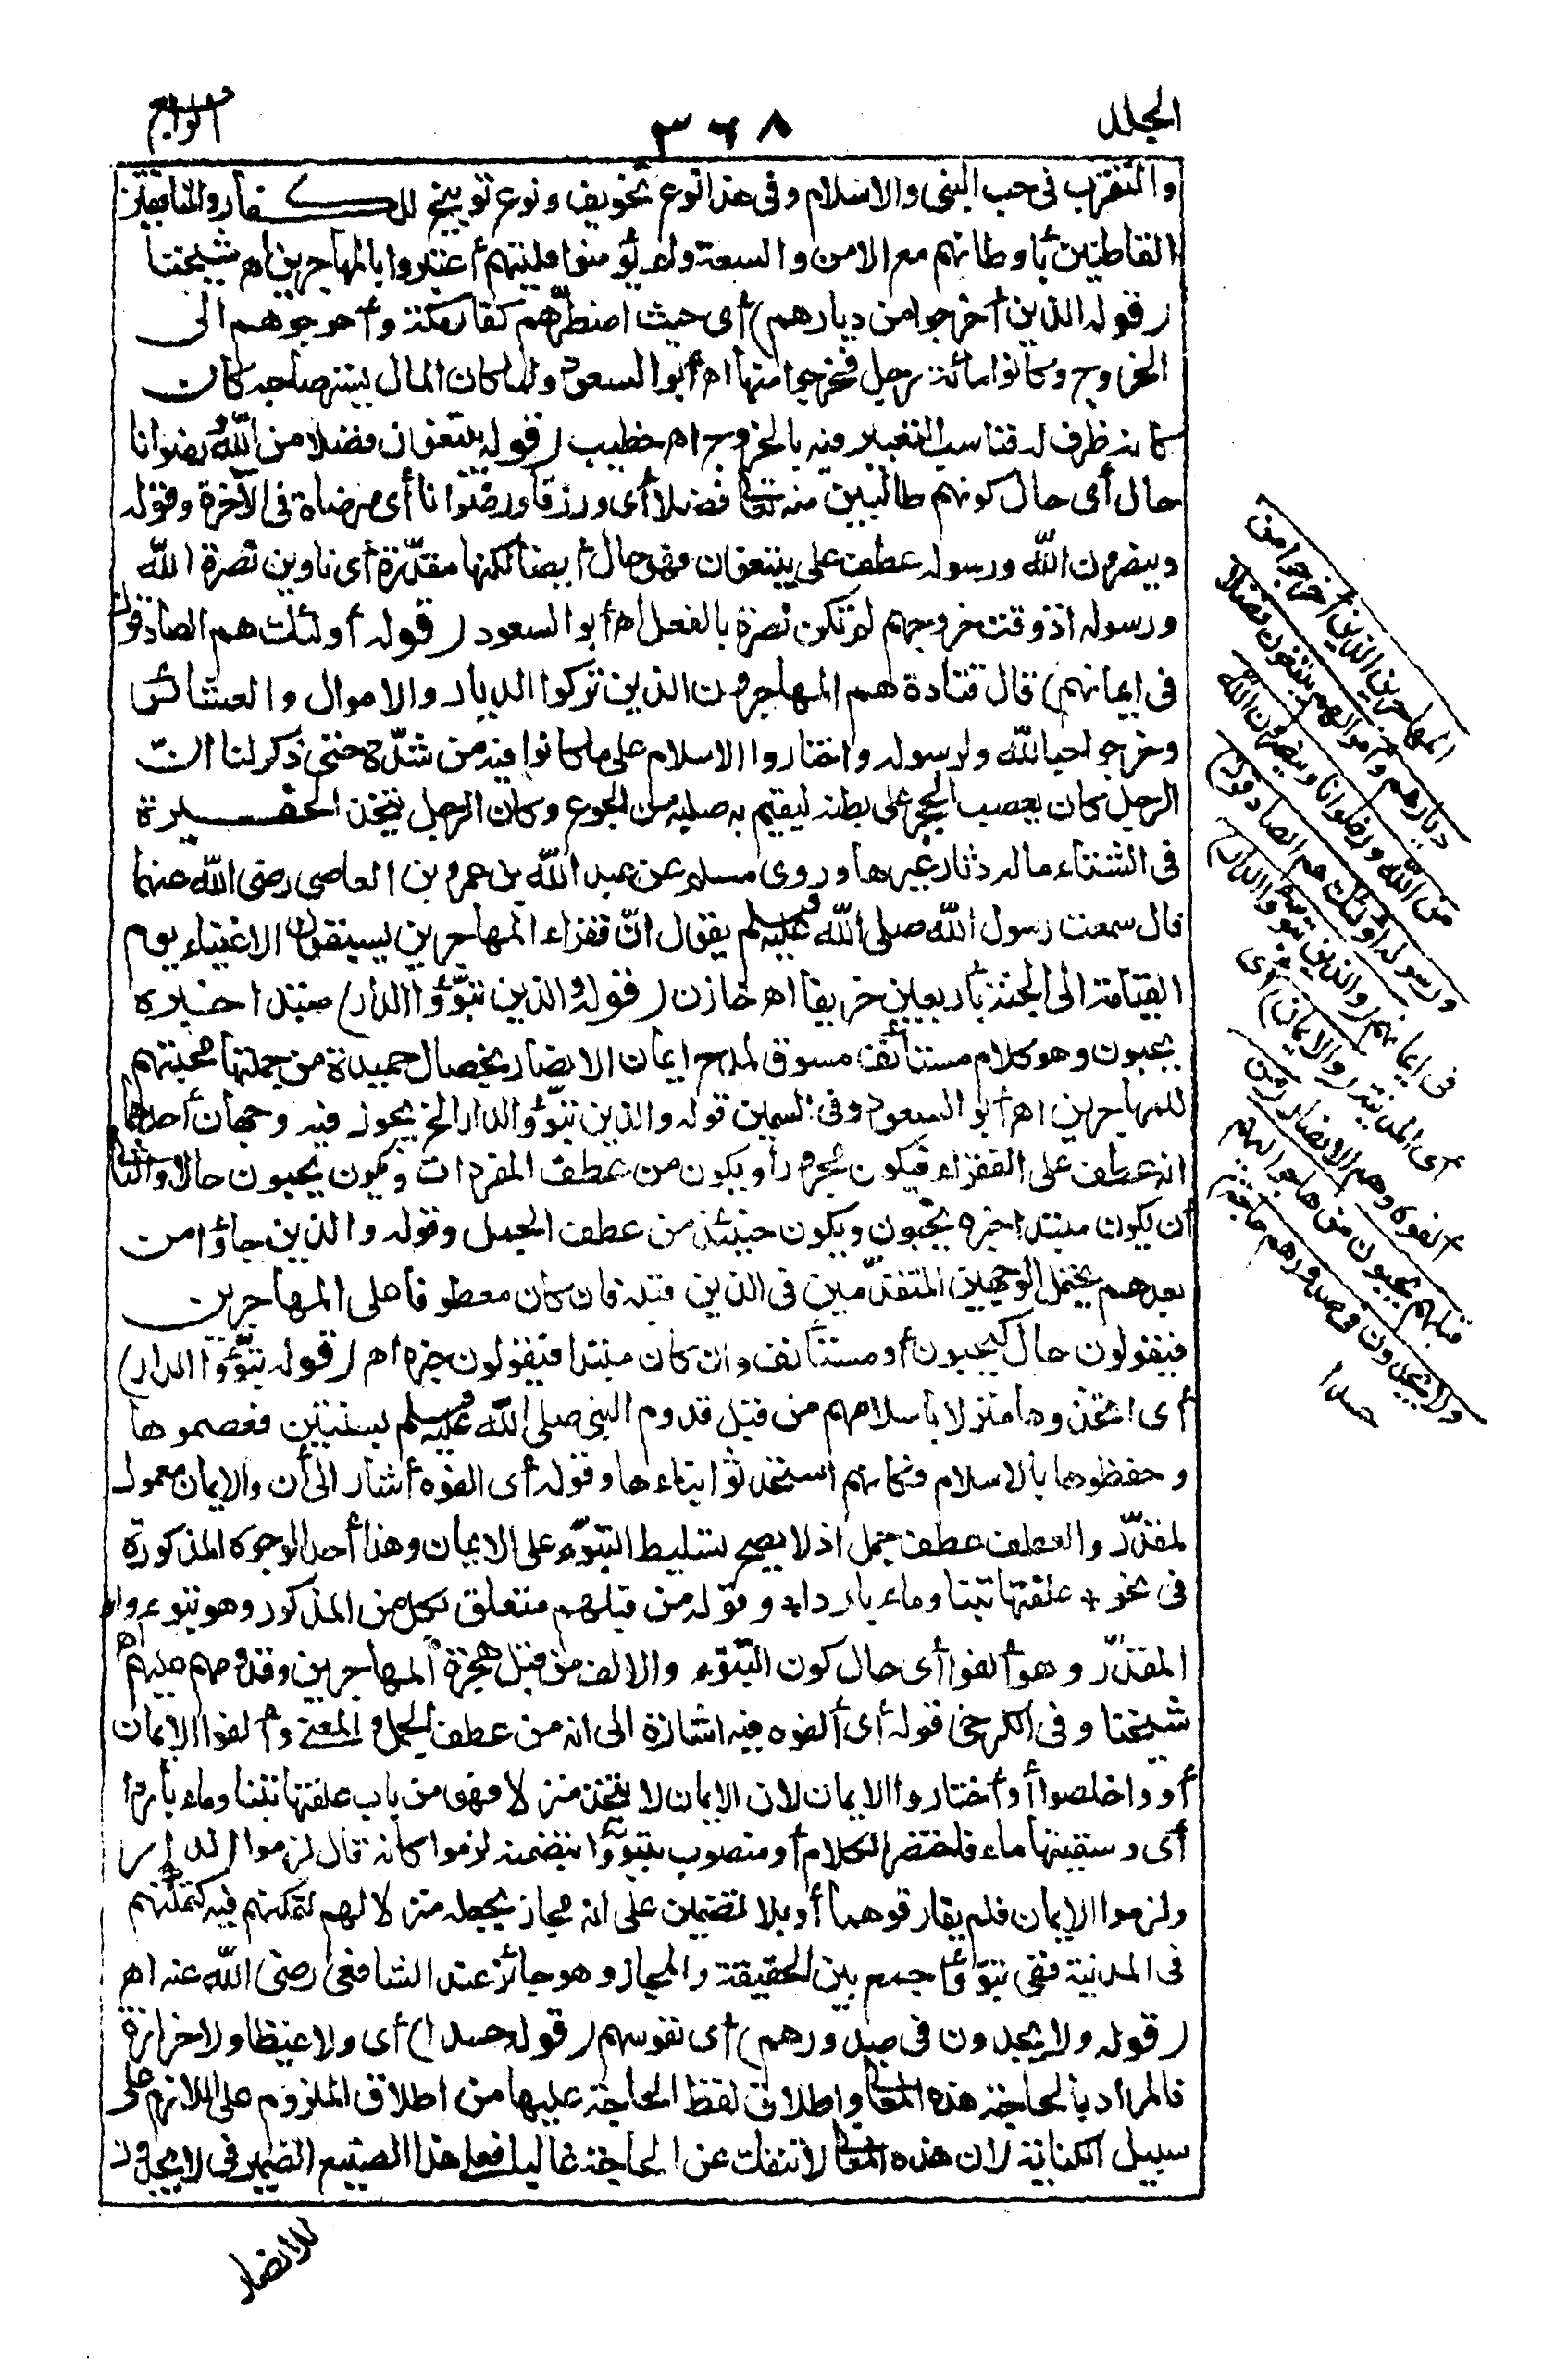 الجلد
٣٦٨
الرابع
والتغرب فى حب النبى والاسلام وفى هذا نوع تخويف ونوع توبيخ للكفار والمنافقين
القاطنين بأوطانهم مع الامن والسعة ولم يؤمنوا فليتهم أعتبروا بالمهاجرين اه شيختا
(قوله الذين أخرجوا من ديارهم) أى حيث اضطرّهم كفار مكة وأحوجوهم الى
الخروج وكانوا مائة رجل فخرجوا منها اه أبو السعود ولما كان المال يستر صاحبه كان
كانه ظرف له فناسب التعبير فيه بالخروج اه خطيب (قوله يبتغون فضلا من الله ورضوانا
حال أى حال كونهم طالبين منه تعالى فضلا أى ورزقا ورضوانا أى مرضاة فى الآخرة وقوله
وينصرون الله ورسوله عطف على يبتغون فهو حال أيضا لكنها مقدّرة أى ناوين نصرة الله
ورسوله اذ وقت خروجهم لم تكن نصرة بالفعل اه أبو السعود (قوله أولئك هم الصادقون
فى ايمانهم) قال قتادة هم المهاجرون الذين تركوا الديار والاموال والعشائر
وخرجوا حبا لله ولرسوله واختاروا الاسلام على ما كانوا فيه من شدّة حتى ذكر لنا انّ
الرجل كان يعصب الحجر على بطنه ليقيم به صلبه من الجوع وكان الرجل يتخذ الحفيرة
فى الشتاء ماله دثار غيرها وروى مسلم عن عبد الله بن عمرو بن العاصى رضى الله عنهما
قال سمعت رسول الله صلى الله عليه وسلم يقول انّ فقراء المهاجرين يسبقون الاغنياء يوم
القيامة الى الجنة بأربعين خريفا اه خازن (قوله والذين تبوّؤا الدار) مبتدا خبره
يحبون وهو كلام مستأنف مسوق لمدح ايمان الانصار بخصال حميدة من جملتها محبتهم
للمهاجرين اه أبو السعود وفى السمين قوله والذين تبوّؤ الدار الخ يجوز فيه وجهان أحدهما
انه عطف على الفقراء فيكون مجرورا ويكون من عطف المفردات ويكون يحبون حالا والثانى
أن يكون مبتدا خبره يحبون ويكون حينئذ من عطف الجمل وقوله والذين جاؤا من
بعدهم يحتمل الوجهين المتقدّمين فى الذين قبله فان كان معطوفا على المهاجرين
فيقولون حال كيحبون أو مستأنف وان كان مبتدا فيقولون خبره اه (قوله تبوّؤا الدار)
أى اتخذوها منزلا باسلامهم من قبل قدوم النبى صلى الله عليه وسلم بسنتين فعصموها
وحفظوها بالاسلام فكانهم استحدثوا بناءها وقوله أى الفوه أشار الى أن والايمان معمول
لمقدّر والعطف عطف جمل اذ لا يصح تسليط التبوّء على الايمان وهذا أحد الوجوه المذكورة
فى نحو * علفتها تبنا وماء باردا * وقوله من قبلهم متعلق بكل من المذكور وهو تبوء وا
المقدّر وهو ألفوا أى حال كون التبوّء والالف من قبل هجرة المهاجرين وقدومهم عليهم اه
شيختا وفى الكرخى قوله أى ألفوه فيه اشارة الى انه من عطف الجمل والمعنى وألفوا الايمان
أو واخلصوا أو أختاروا الايمان لان الايمان لا يتخذ منزلا فهو من باب علفتها تبنا وماء باردا
أى وسقيتها ماء فاختصر الكلام أو منصوب بتبوّؤا بتضمنه لزموا كانه قال لزموا الدار
ولزموا الايمان فلم يفارقوهما أو بلا تضمين على انه مجاز بجعله منزلا لهم لتمكنهم فيه كتمكنهم
فى المدينة ففى تبوّؤا جمع بين الحقيقة والمجاز وهو جائز عند الشافعى رضى الله عنه اه
(قوله ولا يجدون فى صدورهم) أى نفوسهم (قوله حسدا) أى ولا غيظا ولا حزازة
فالمراد بالحاجة هذه المعانى واطلاق لفظ الحاجة عليها من اطلاق الملزوم على اللازم على
سبيل الكناية لان هذه المعانى لا تنفك عن الحاجة غالبا فعلى هذا الصنيع الضمير فى لا يجدون
للانصار
المهاجرين الذين أخرجوا من
ديارهم وأموالهم يبتغون فضلا
من الله ورضوانا وينصرون الله
ورسوله أولئك هم الصادقون)
فى ايمانهم (والذين تبوّؤا الدار)
أى المدينة (والايمان) أى
ألفوه وهم الانصار (من
قبلهم يحبون من هاجر اليهم
ولا يجدون فى صدورهم حاجة)
حسدا